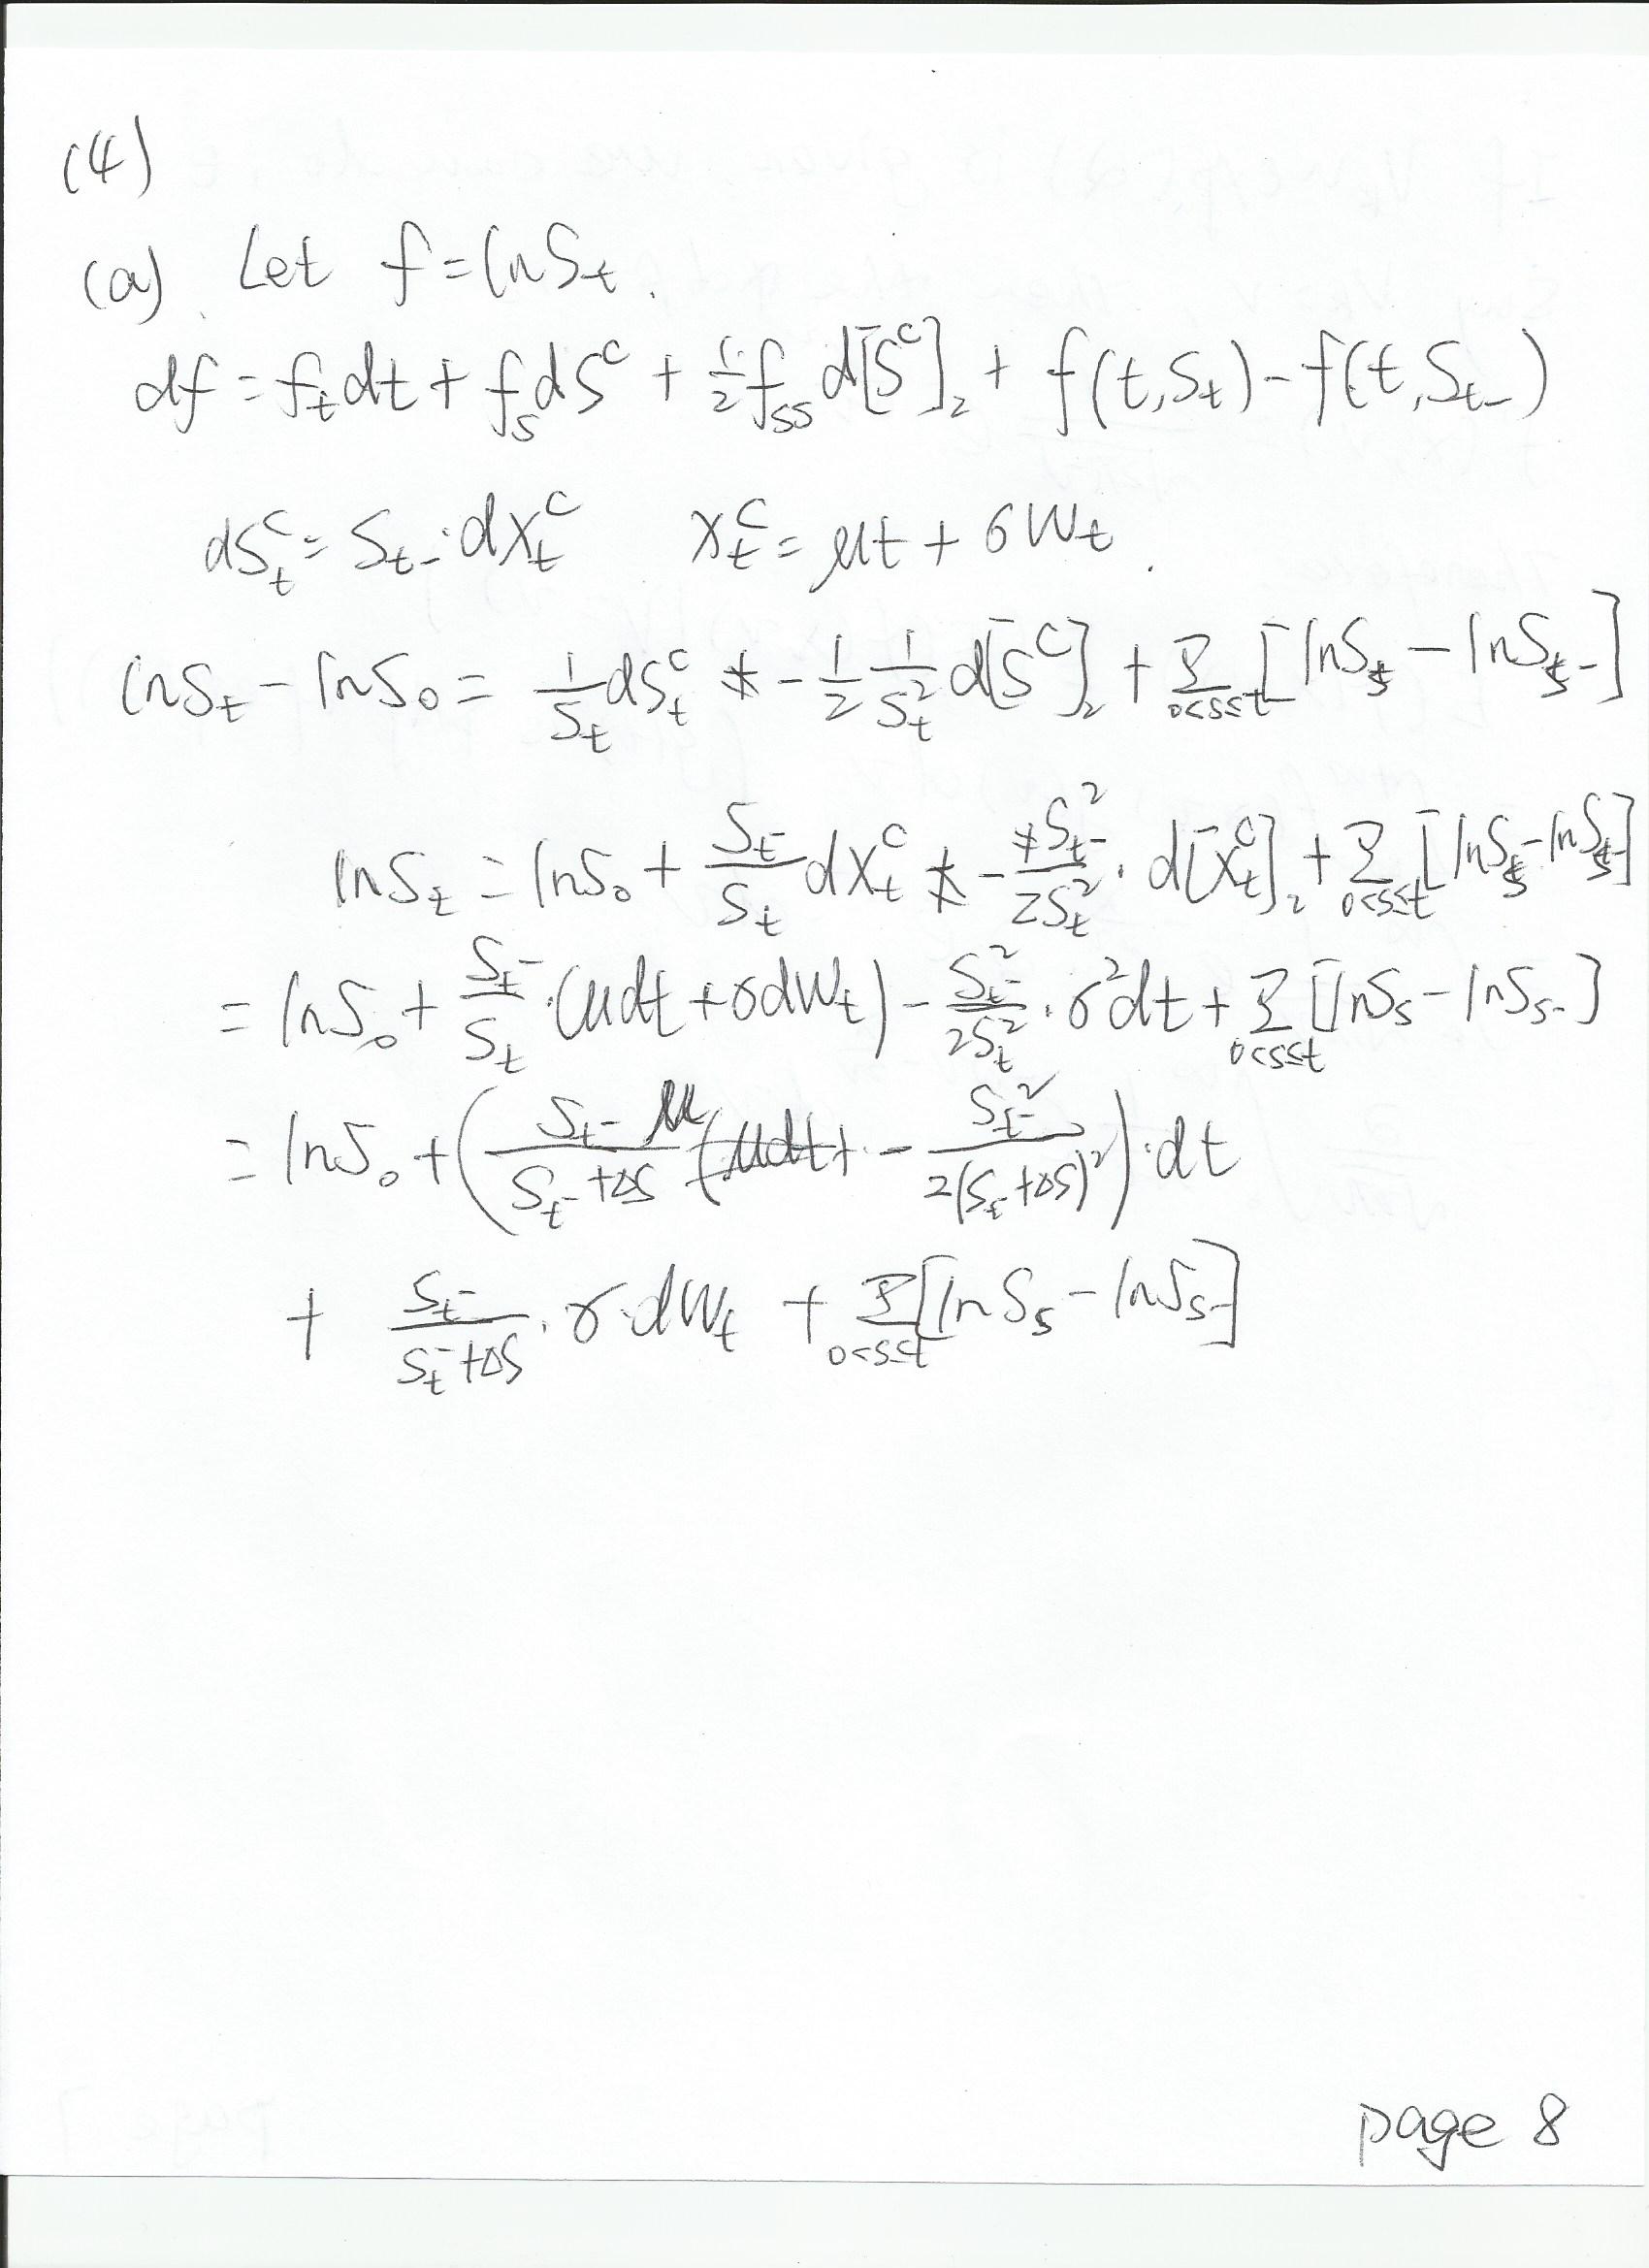 (4)
(a) Let f = ln S_t.
df = f_t dt + f_s dS^c + 1/2 f_ss d[S^c]_2 + f(t, S_t) - f(t, S_t-)
dS_t^c = S_t- · dX_t^c X_t^c = μt + σW_t.
ln S_t - ln S_0 = 1/S_t dS_t^c - 1/2 1/S_t^2 d[S^c]_2 + Σ_{0<s≤t} [ln S_s - ln S_s-]
ln S_t = ln S_0 + S_t-/S_t dX_t^c - S_t-^2/2S_t^2 · d[X_t^c]_2 + Σ_{0<s≤t} [ln S_s - ln S_s-]
= ln S_0 + S_t-/S_t · (μdt + σdW_t) - S_t-^2/2S_t^2 · σ^2 dt + Σ_{0<s≤t} [ln S_s - ln S_s-]
= ln S_0 + (S_t- μ/S_t- + ΔS - S_t-^2/2(S_t- + ΔS)^2) · dt
+ S_t-/S_t- + ΔS · σ · dW_t + Σ_{0<s≤t} [ln S_s - ln S_s-]
page 8